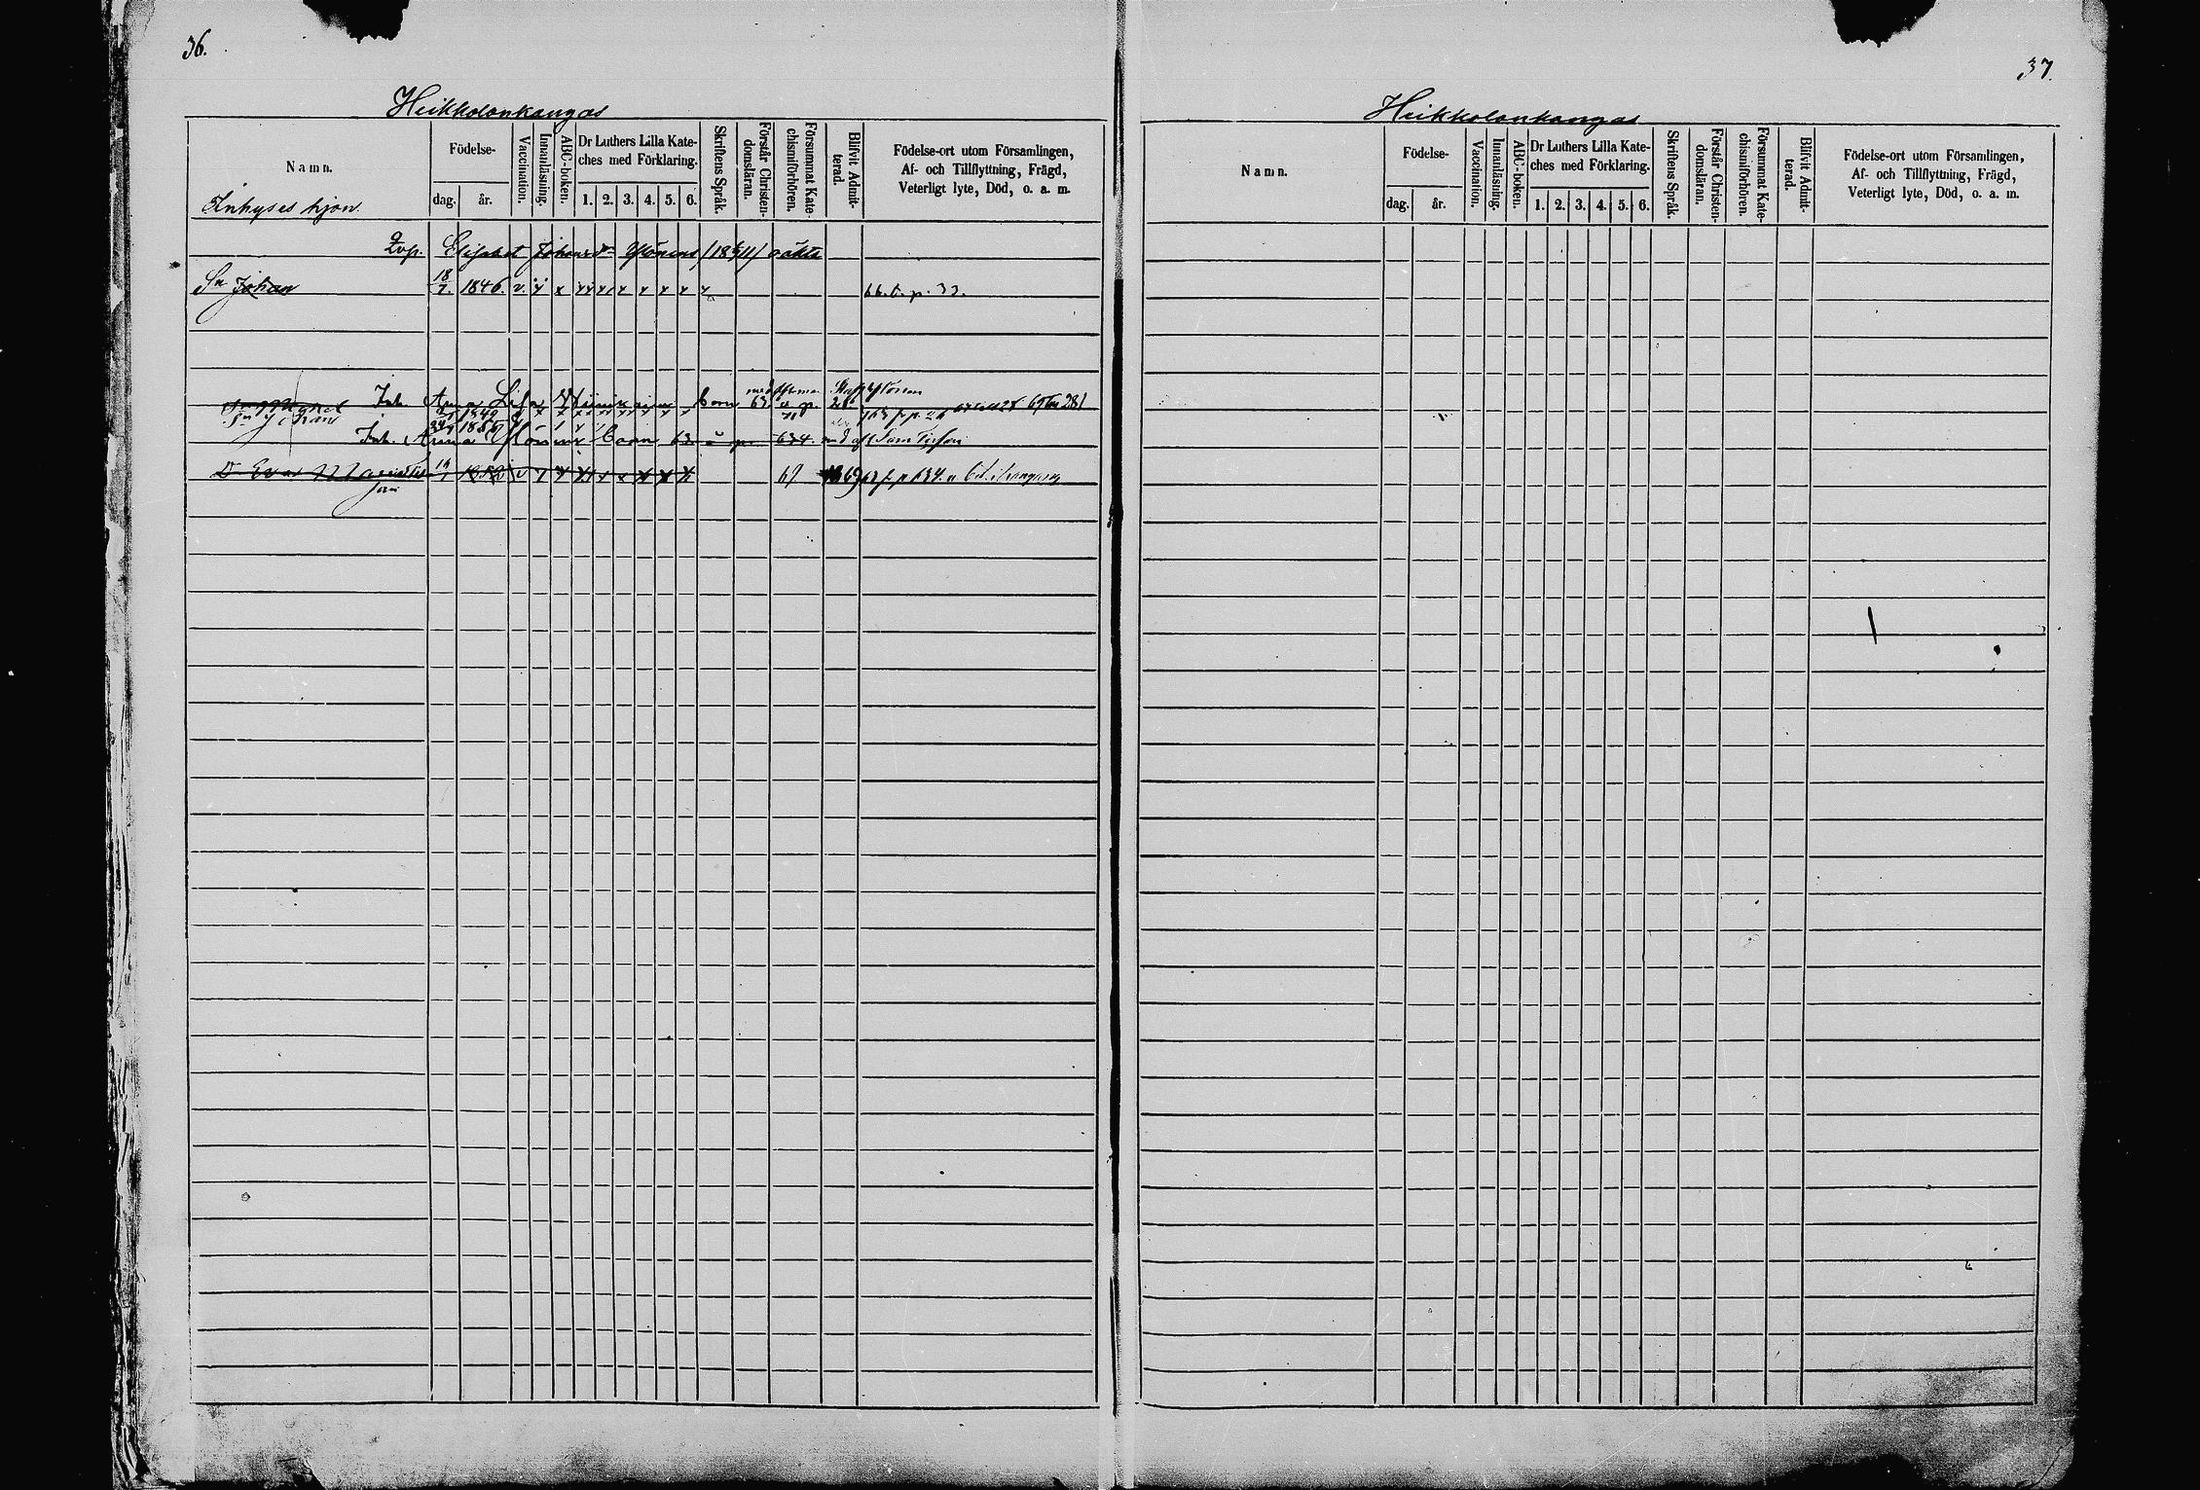 36.
Heikkolankangas
Namn.
Inhyses hjon.
Födelse-
dag. år.
Vaccination.
Innanläsning.
ABC-boken.
Dr Luthers Lilla Kate-
ches med Förklaring.
1. 2. 3. 4. 5. 6.
Skriftens Språk.
Förstår Christen-
domsläran.
Försummat Kate-
chismiförhören.
Blifvit Admit-
terad.
Födelse-ort utom Församlingen,
Af- och Tillflyttning, Frägd,
Veterligt lyte, Död, o. a. m.
Qvp. Elisabet Johansdr Ylönens oäkta
Sn Johan 18/7. 1846. v. 66. p. 33.
Inh. Anna Lisa barn
1849
Sn Johan
Inh. Anna Ylönens barn 63 634.
Dr Eva 1852 v 69 1869
37.
Heikkolankangas
Namn.
Födelse-
dag. år.
Vaccination.
Innanläsning.
ABC-boken.
Dr Luthers Lilla Kate-
ches med Förklaring.
1. 2. 3. 4. 5. 6.
Skriftens Språk.
Förstår Christen-
domsläran.
Försummat Kate-
chismiförhören.
Blifvit Admit-
terad.
Födelse-ort utom Församlingen,
Af- och Tillflyttning, Frägd,
Veterligt lyte, Död, o. a. m.